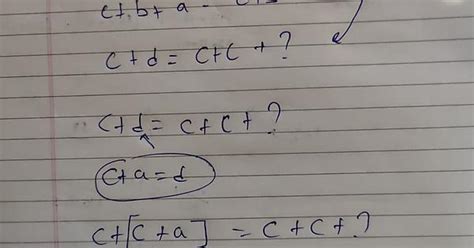 c+b+a =
c+d = c+c+?
c+d = c+c+?
c+a=d
c+[c+a] = c+c+?